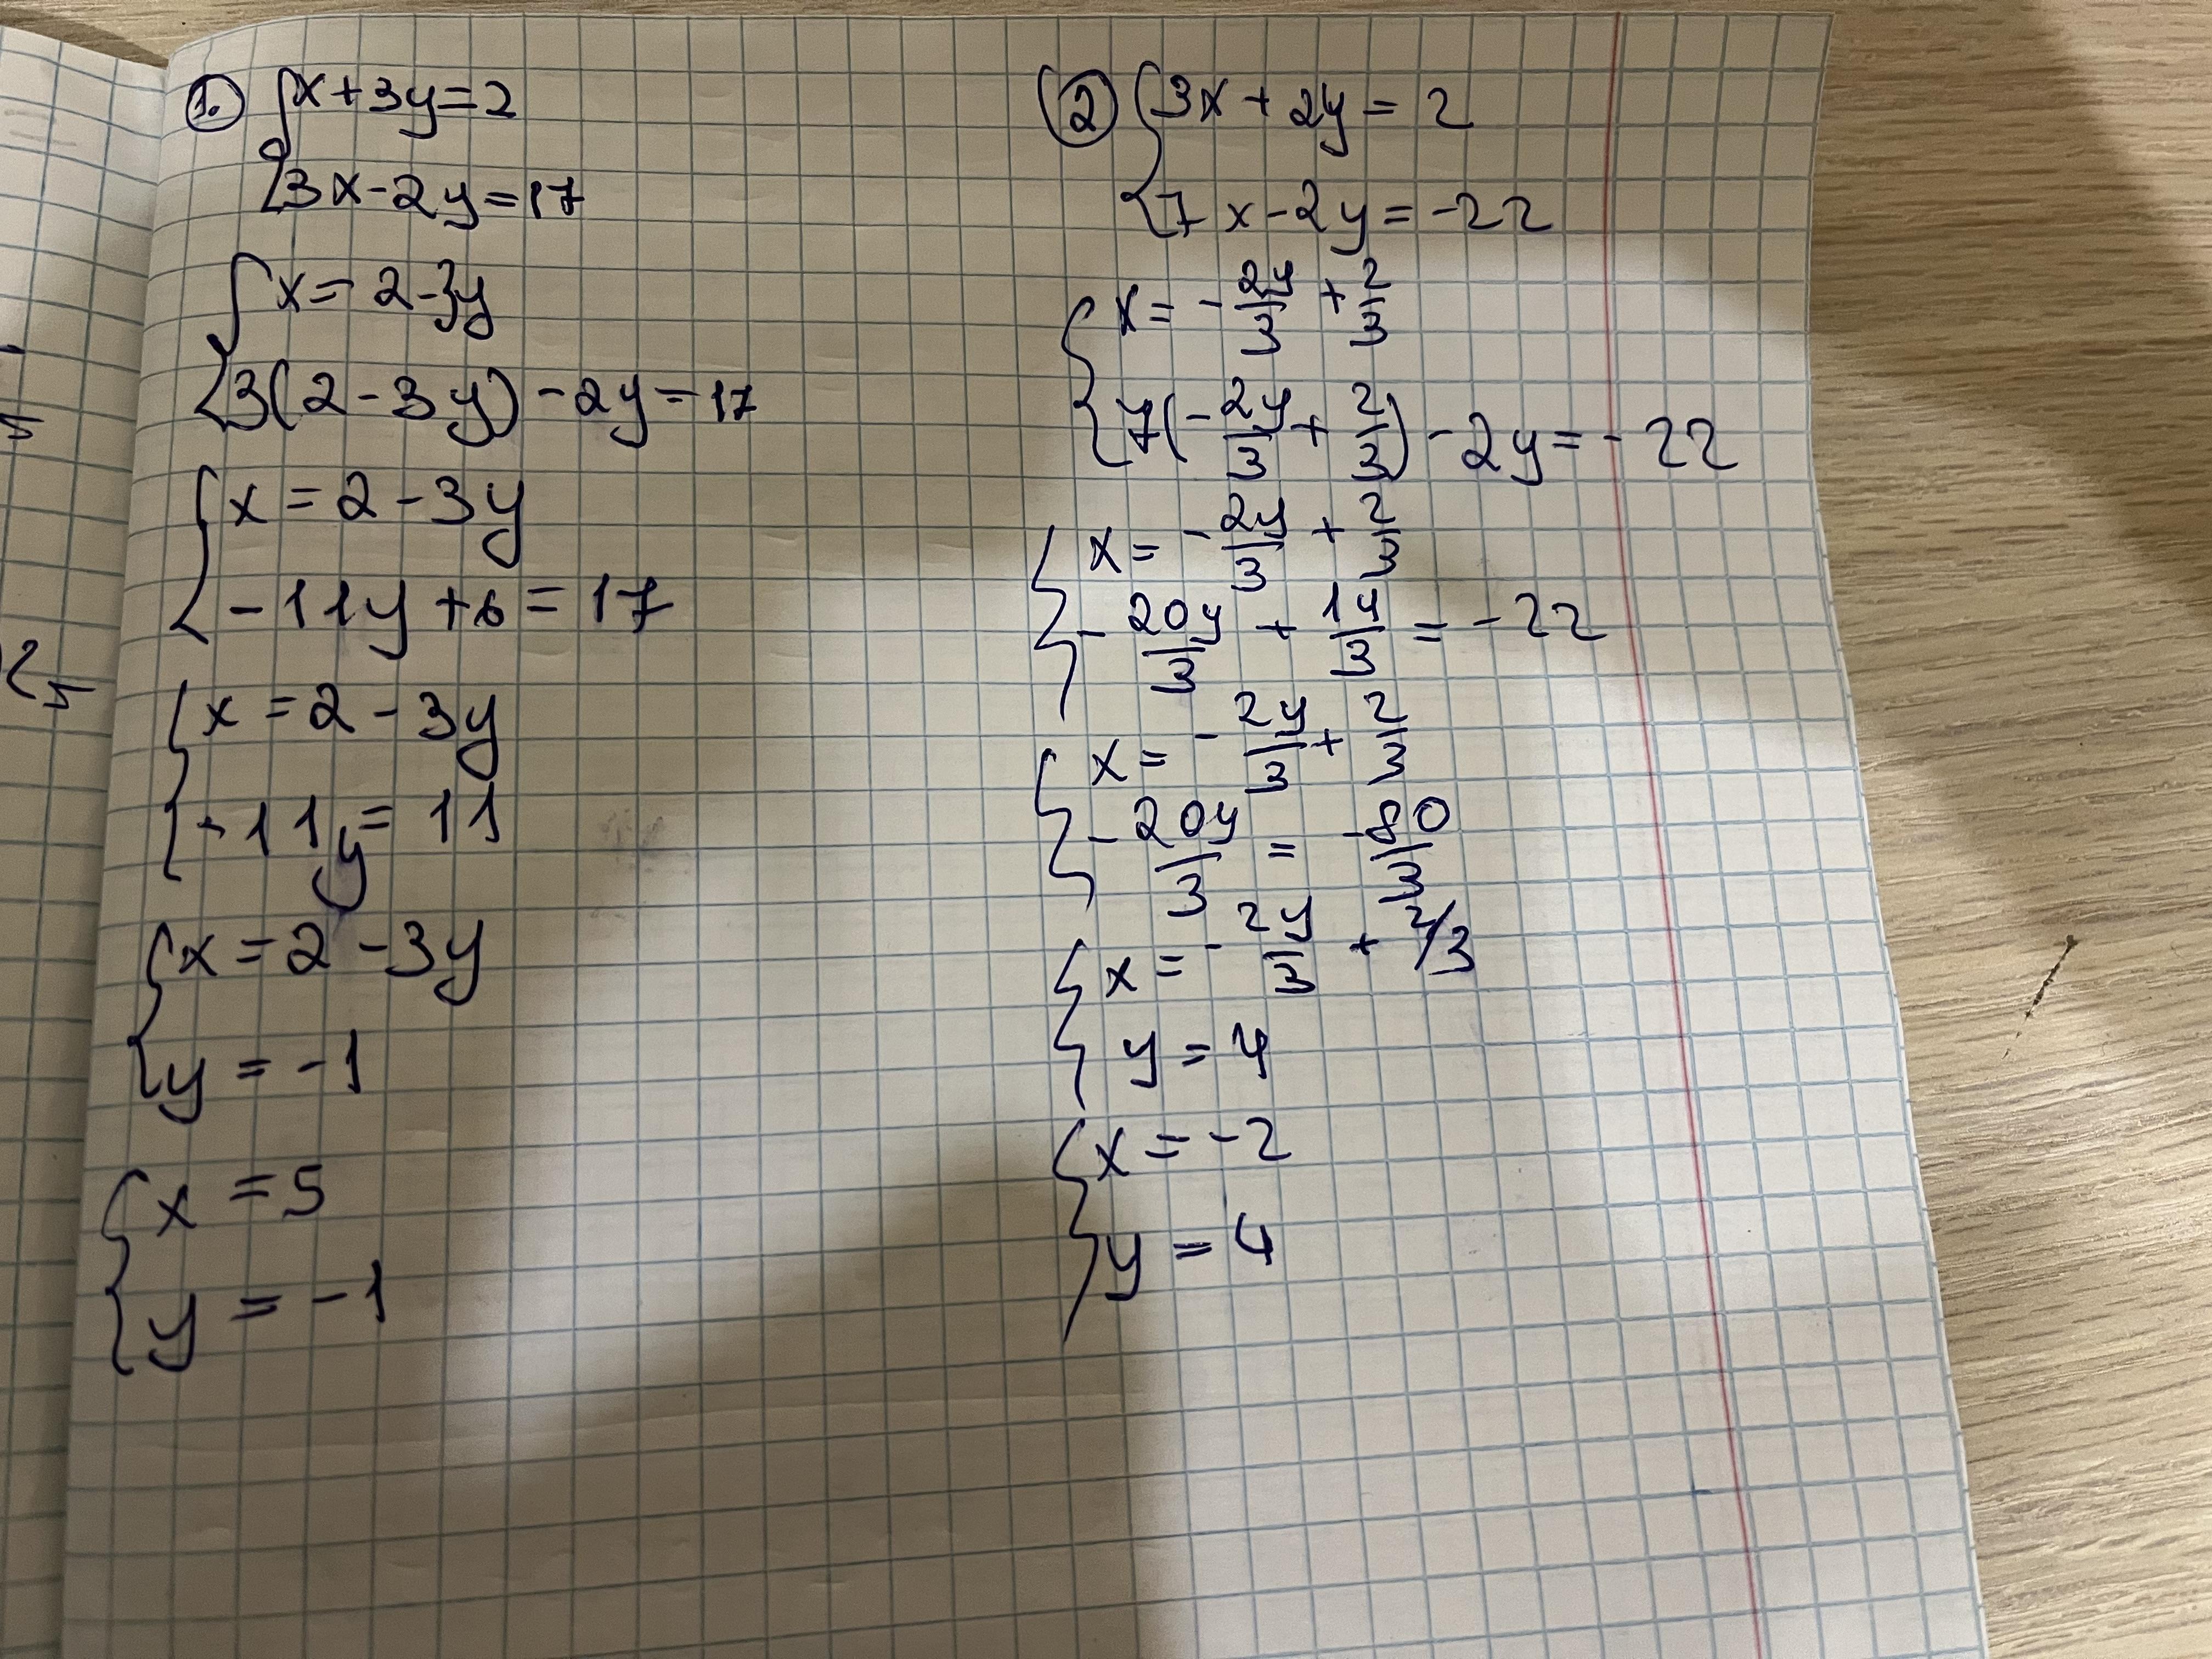 1. x+3y=2
3x-2y=17
x=2-3y
3(2-3y)-2y=17
x=2-3y
-11y+6=17
x=2-3y
-11y=11
x=2-3y
y=-1
x=5
y=-1
2 3x+2y=2
7x-2y=-22
x=-2y/3+2/3
7(-2y/3+2/3)-2y=-22
x=-2y/3+2/3
-20y/3+14/3=-22
x=-2y/3+2/3
-20y/3=-80/3
x=-2y/3+2/3
y=4
x=-2
y=4